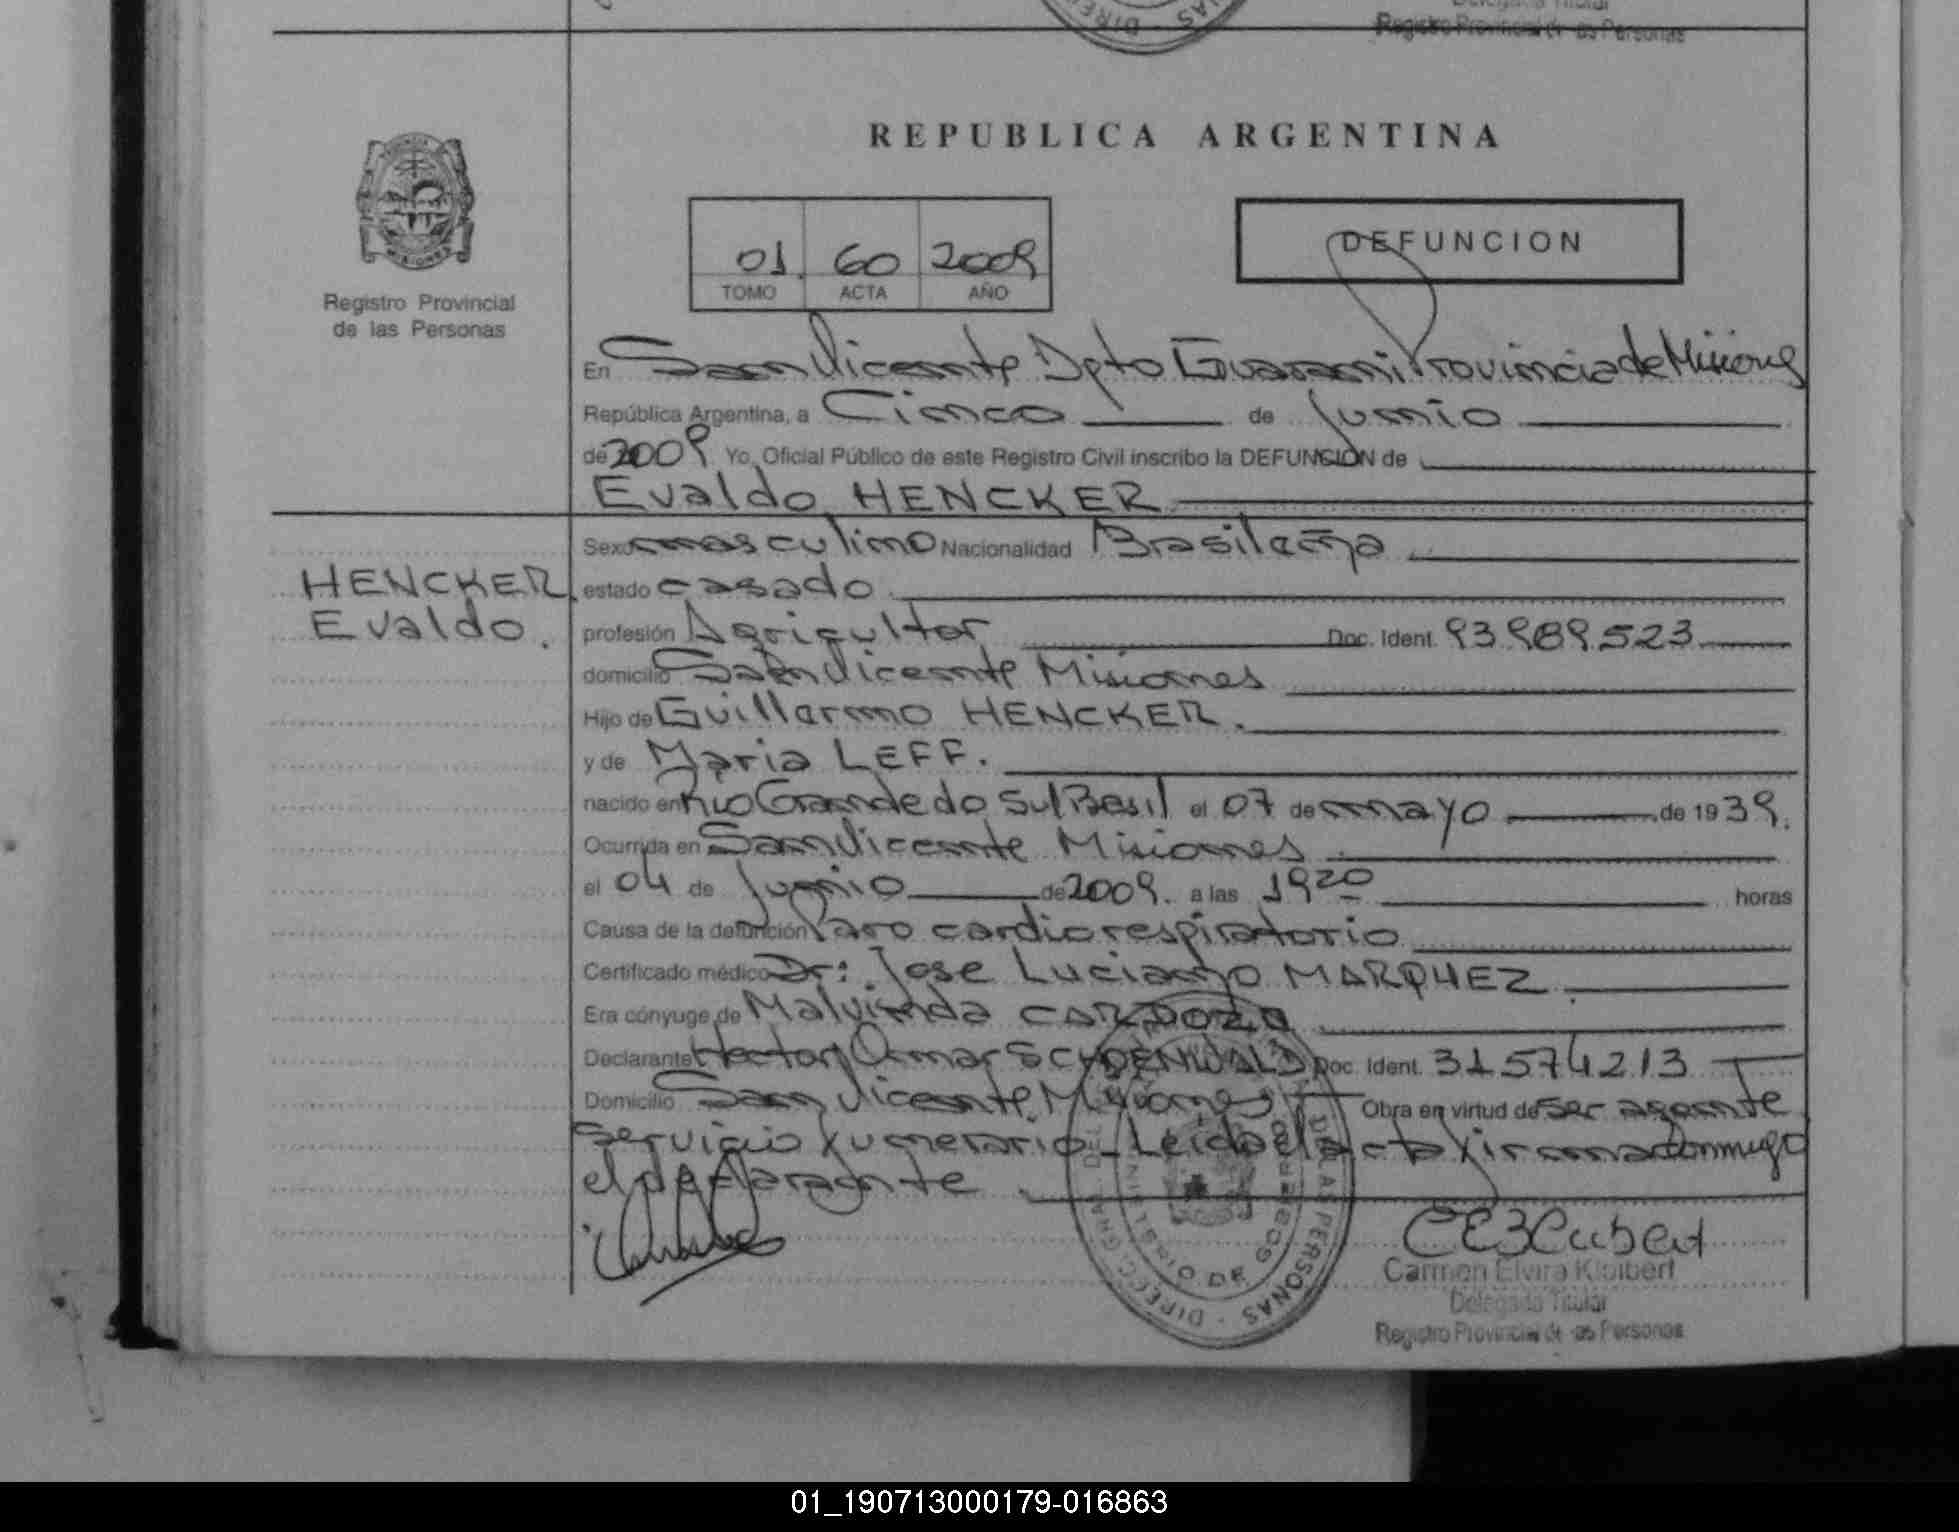 Registro Provincial de las Personas
REPUBLICA ARGENTINA
MISIONES
Registro Provincial
de las Personas
01 60 2009
TOMO ACTA AÑO
DEFUNCION
En San Vicente Dpto Guarani Provincia de Misiones
República Argentina, a Cinco de Junio
de 2009 Yo, Oficial Público de este Registro Civil inscribo la DEFUNCION de
Evaldo HENCKER
HENCKER
Evaldo.
Sexo masculino Nacionalidad Brasileña
estado casado
profesión Agricultor Doc. Ident. 93.989.523
domicilio San Vicente Misiones
Hijo de Guillermo HENCKER.
y de Maria LEFF.
nacido en Rio Grande do Sul Basil el 07 de mayo de 1939.
Ocurrida en San Vicente Misiones
el 04 de Junio de 2009. a las 19 20 horas
Causa de la defunción Paro cardiorespiratorio
Certificado médico Dr: Jose Luciano MARQUEZ
Era cónyuge de Malvinda CARDOZO
Declarante Hector Omar SCHOENWALD Doc. Ident. 31574213
Domicilio San Vicente Misiones Obra en virtud de ser agente
Servicio Leida el acta firma conmigo
el declarante
Carmen Elvira Kleibert
Delegada Titular
Registro Provincial de las Personas
01_190713000179-016863